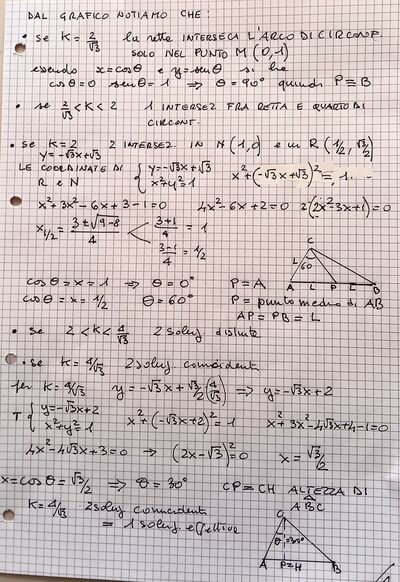 DAL GRAFICO NOTIAMO CHE:
• se K = 2/√3 la retta INTERSECA L'ARCO DI CIRCONF.
SOLO NEL PUNTO M (0,1)
essendo x=cosθ e y=senθ si ha
cosθ=0 senθ=1 ⇒ θ=90° quindi P≡B
• se 2/√3<K<2 1 INTERSEZ FRA RETTA E QUARTO DI
CIRCONF.
• se K=2 2 INTERSEZ. IN N(1,0) e in R(1/2, √3/2)
y=-√3x+√3
LE COORDINATE DI R e N { y=-√3x+√3 x²+y²=1 x²+(-√3x+√3)²=1
x²+3x²-6x+3-1=0 4x²-6x+2=0 2(2x²-3x+1)=0
x1/2 = 3±√9-8/4 3+1/4 = 1
3-1/4 = 1/2
C
60
L
A L P L B
cosθ=x=1 ⇒ θ=0° P=A
cosθ=x=1/2 θ=60° P=punto medio di AB
AP=PB=L
• se 2<K<4/√3 2 soluz. distinte
• se K=4/√3 2 soluz coincidenti
per K=4/√3 y=-√3x+√3/2(4/√3) ⇒ y=-√3x+2
T { y=-√3x+2 x²+y²=1 x²+(-√3x+2)²=1 x²+3x²-4√3x+4-1=0
4x²-4√3x+3=0 → (2x-√3)²=0 x=√3/2
x=cosθ=√3/2 ⇒ θ=30° CP=CH ALTEZZA DI
ABC
K=4/√3 2 soluz coincidenti
= 1 soluz effettiva
C
θ=30°
A P=H B